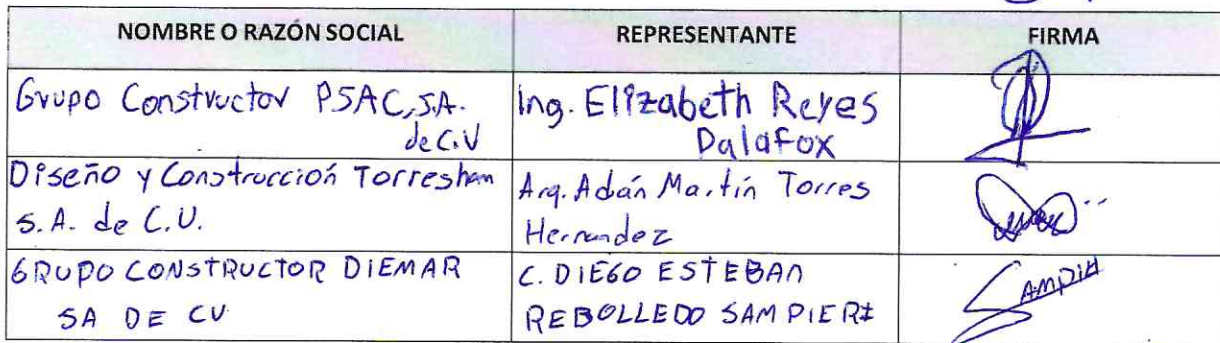 NOMBRE O RAZÓN SOCIAL REPRESENTANTE FIRMA
Grupo Constructor PSAC, S.A. de C.V
Ing. Elizabeth Reyes
Palafox
Diseño y Construcción Torresham
S.A. de C.V.
Arq. Adán Martín Torres
Hernandez
GRUPO CONSTRUCTOR DIEMAR
SA DE CV
C. DIEGO ESTEBAN
REBOLLEDO SAMPIERI